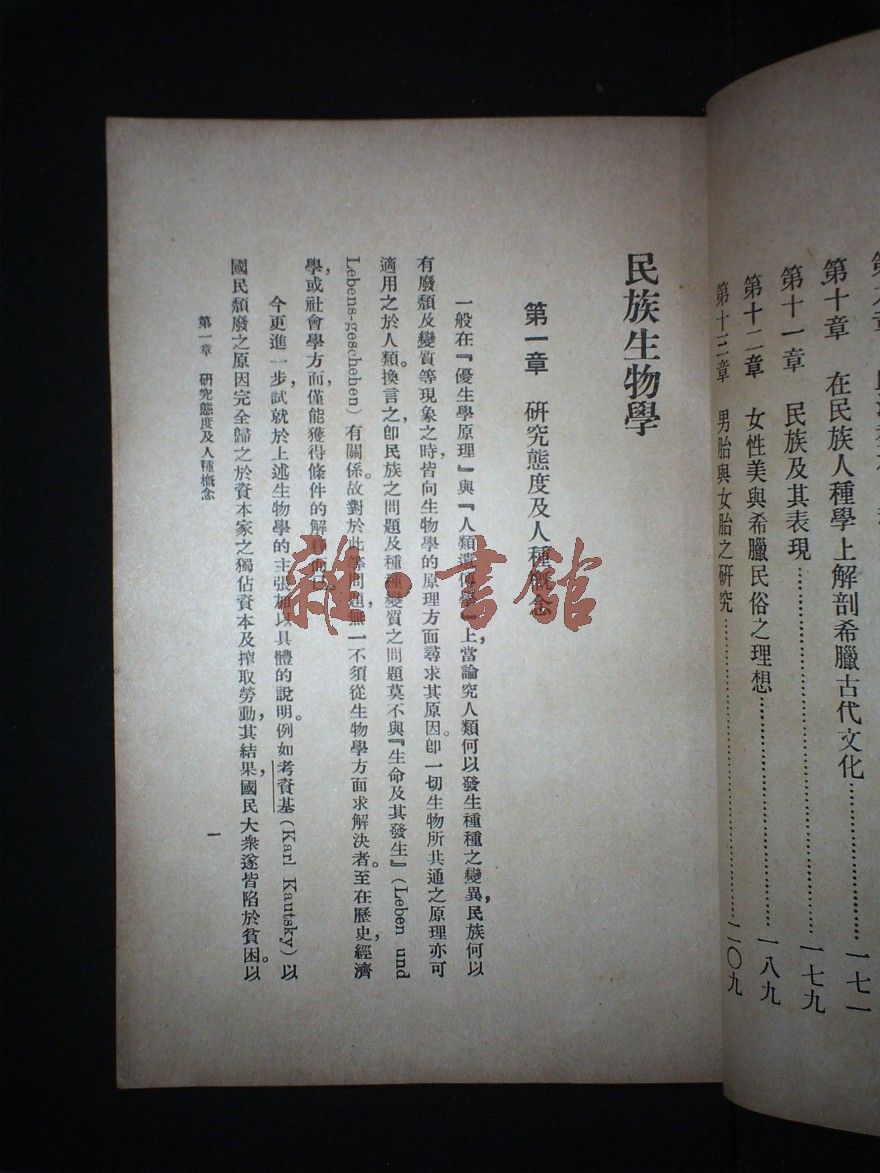 第十章　在民族人種學上解剖希臘古代文化……一七一
第十一章　民族及其表現……一七九
第十二章　女性美與希臘民俗之理想……一八九
第十三章　男胎與女胎之研究……二〇九
民族生物學
第一章　研究態度及人種概念
一般在『優生學原理』與『人類遺傳學』上，當論究人類何以發生種種之變異，民族何以
有廢頹及變質等現象之時，皆向生物學的原理方面尋求其原因。卽一切生物所共通之原理亦可
適用之於人類。換言之，卽民族之問題及種種變質之問題莫不與『生命及其發生』(Leben und
Lebens-geschehen) 有關係。故對於此等問題，無一不須從生物學方面求解決者。至在歷史，經濟
學，或社會學方面，僅能獲得條件的解釋而已。
今更進一步，試就於上述生物學的主張加以具體的說明。例如考資基 (Karl Kautsky) 以
國民頹廢之原因完全歸之於資本家之獨佔資本及搾取勞動，其結果，國民大衆遂皆陷於貧困。以
第一章　研究態度及人種概念
一
雜·書館